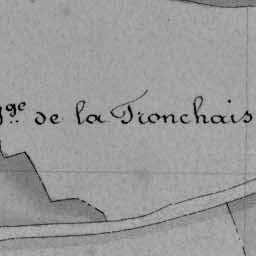 ge de la Tronchais